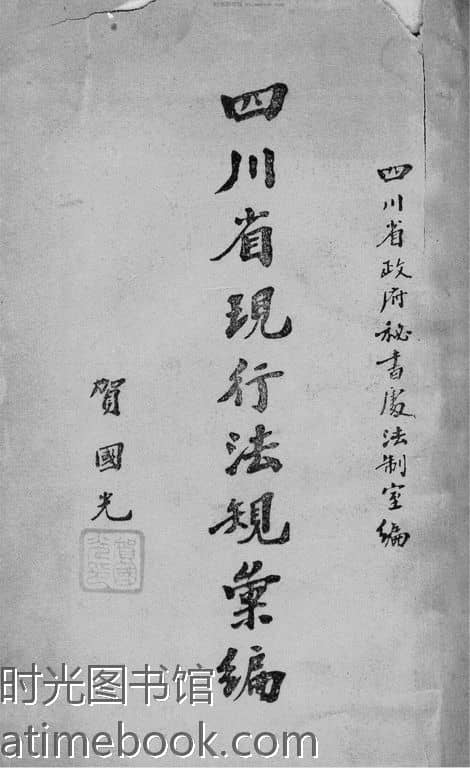 四川省政府秘書處法制室編
四川省現行法規彙編
賀國光
时光图书馆
atimebook.com